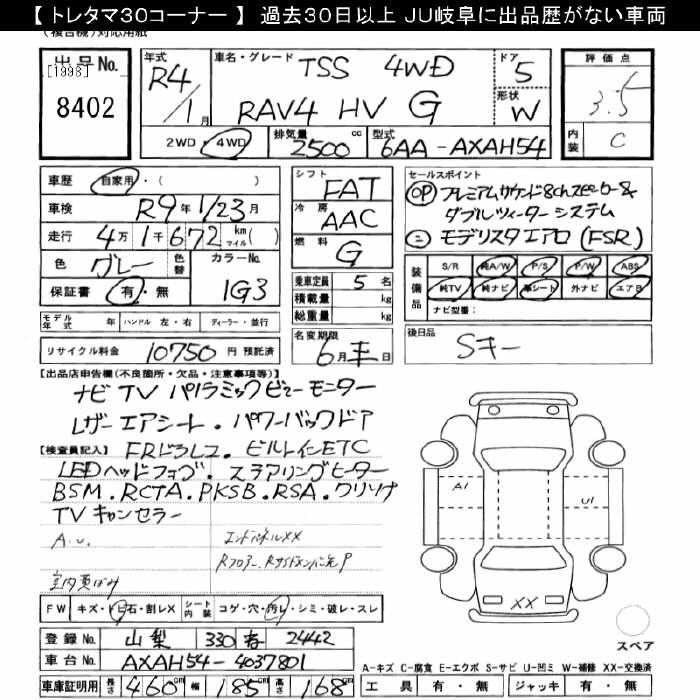 【トレタマ30コーナー】 過去30日以上 JU岐阜に出品歴がない車両
(複合機)対応用紙
出品No. 年式 車名・グレード ドア 評価点
[1998] R4 TSS 4WD 5 3.5
8402 /1月 RAV4 HV G 形状 W 内装 C
2WD・4WD 排気量 2500 cc 型式 6AA-AXAH54
車歴 自家用・( ) シフト FAT セールスポイント
車検 R9年1/23月 冷房 AAC OP プレミアムサウンド8chスピーカー&
ダブルツィーター システム
走行 4万1千672 km マイル( ) 燃料 G ニ モデリスタエアロ(FSR)
色 グレー 色替 カラーNo. 1G3 乗車定員 5名 装備品 S/R 純A/W P/S P/W ABS
保証書 有・無 積載量 kg 純TV 純ナビ 革シート 外ナビ エアB
総重量 kg ナビ型番:
モデル年式 年 ハンドル 左・右 ディーラー・並行 名変期限 6月末 後日品
リサイクル料金 10750 円 預託済 Sキー
【出品店申告欄(不良箇所・欠品・注意事項等)】
ナビ TV パノラミックビューモニター
レザーエアシート.パワーバックドア
【検査員記入】 FRドラレコ.ビルトインETC
LEDヘッドフォグ.ステアリングヒーター
BSM.RCTA.PKSB.RSA.クリソナ
TVキャンセラー
A.U. エンドパネルXX
Rフロアー.RサイドメンバーP
A1 U1
XX
FW キズ・トビ石・割レX シート内装 コゲ・穴・汚レ・シミ・破レ・スレ
登録No. 山梨 330 2442 スペア
車台No. AXAH54-4037801 A-キズ C-腐食 E-エクボ S-サビ U-凹ミ W-補修 XX-交換済
車庫証明用 長さ 460cm 幅 185cm 高さ 168cm 工具 有・無 ジャッキ 有・無